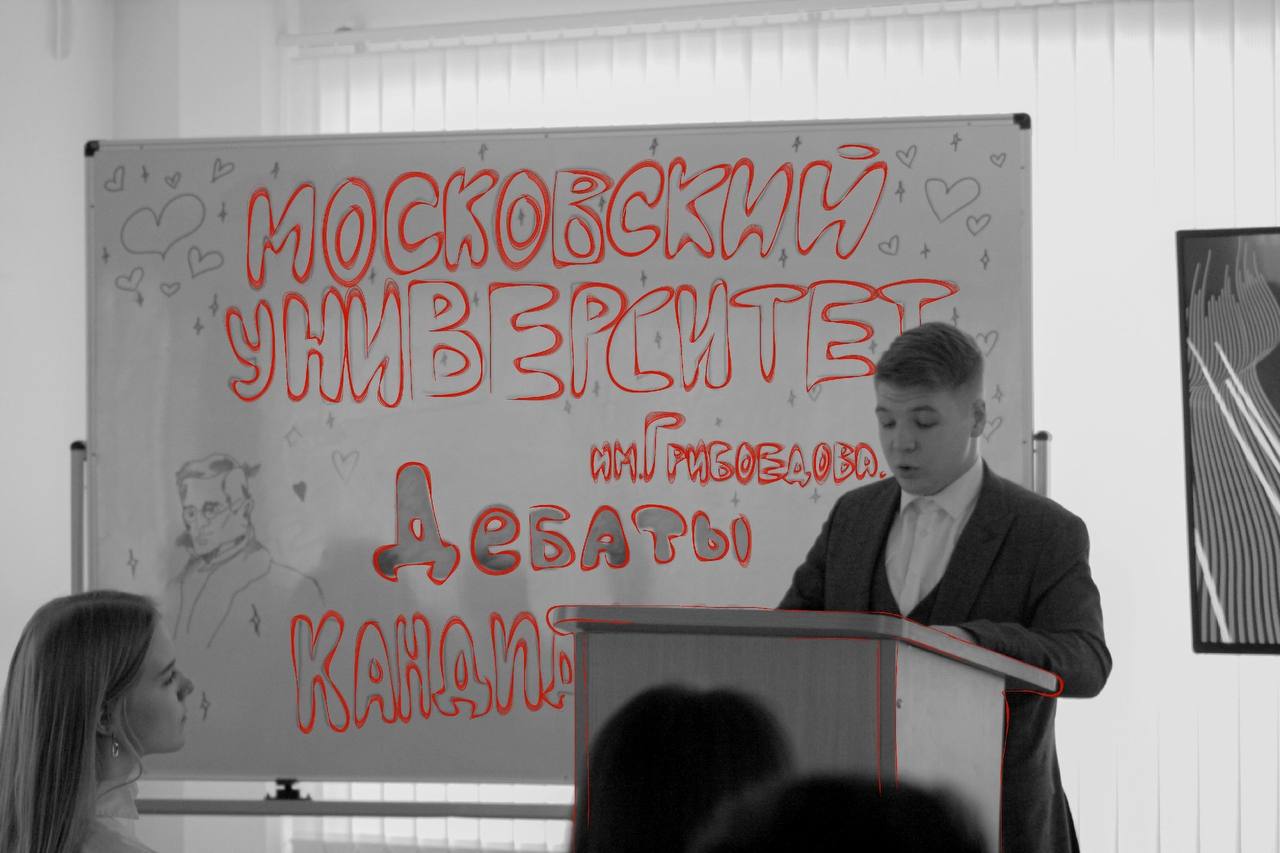 МОСКОВСКИЙ
УНИВЕРСИТЕТ
ИМ.ГРИБОЕДОВА.
Дебаты